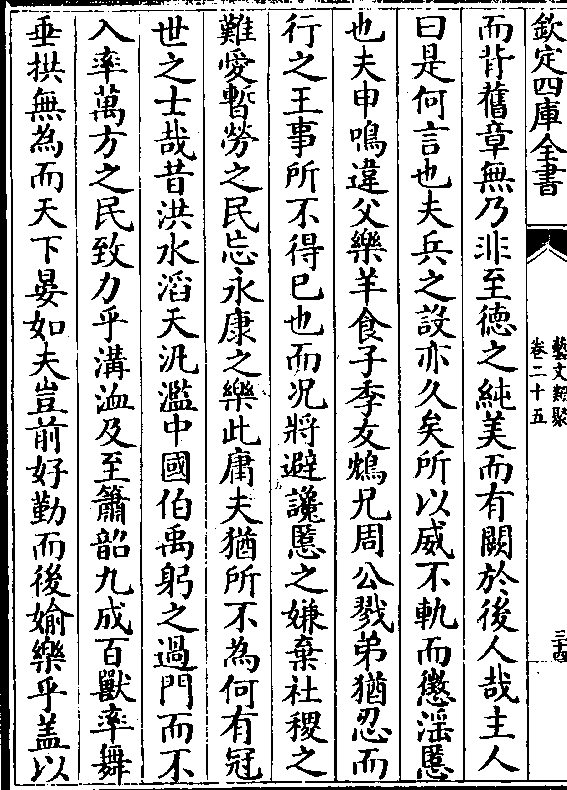 欽定四庫全書
藝文類聚
卷二十五
三十四
而背舊章無乃非至德之純美而有闕於後人哉主人
曰是何言也夫兵之設亦久矣所以威不軌而懲淫慝
也夫申鳴違父樂羊食子季友鴆兄周公戮弟猶忍而
行之王事所不得已也而况將避讒慝之嫌棄社稷之
難愛暫勞之民忘永康之樂此庸夫猶所不為何有冠
世之士哉昔洪水滔天汎濫中國伯禹躬之過門而不
入率萬方之民致力乎溝洫及至簫韶九成百獸率舞
垂拱無為而天下晏如夫豈前好勤而後媮樂乎盖以